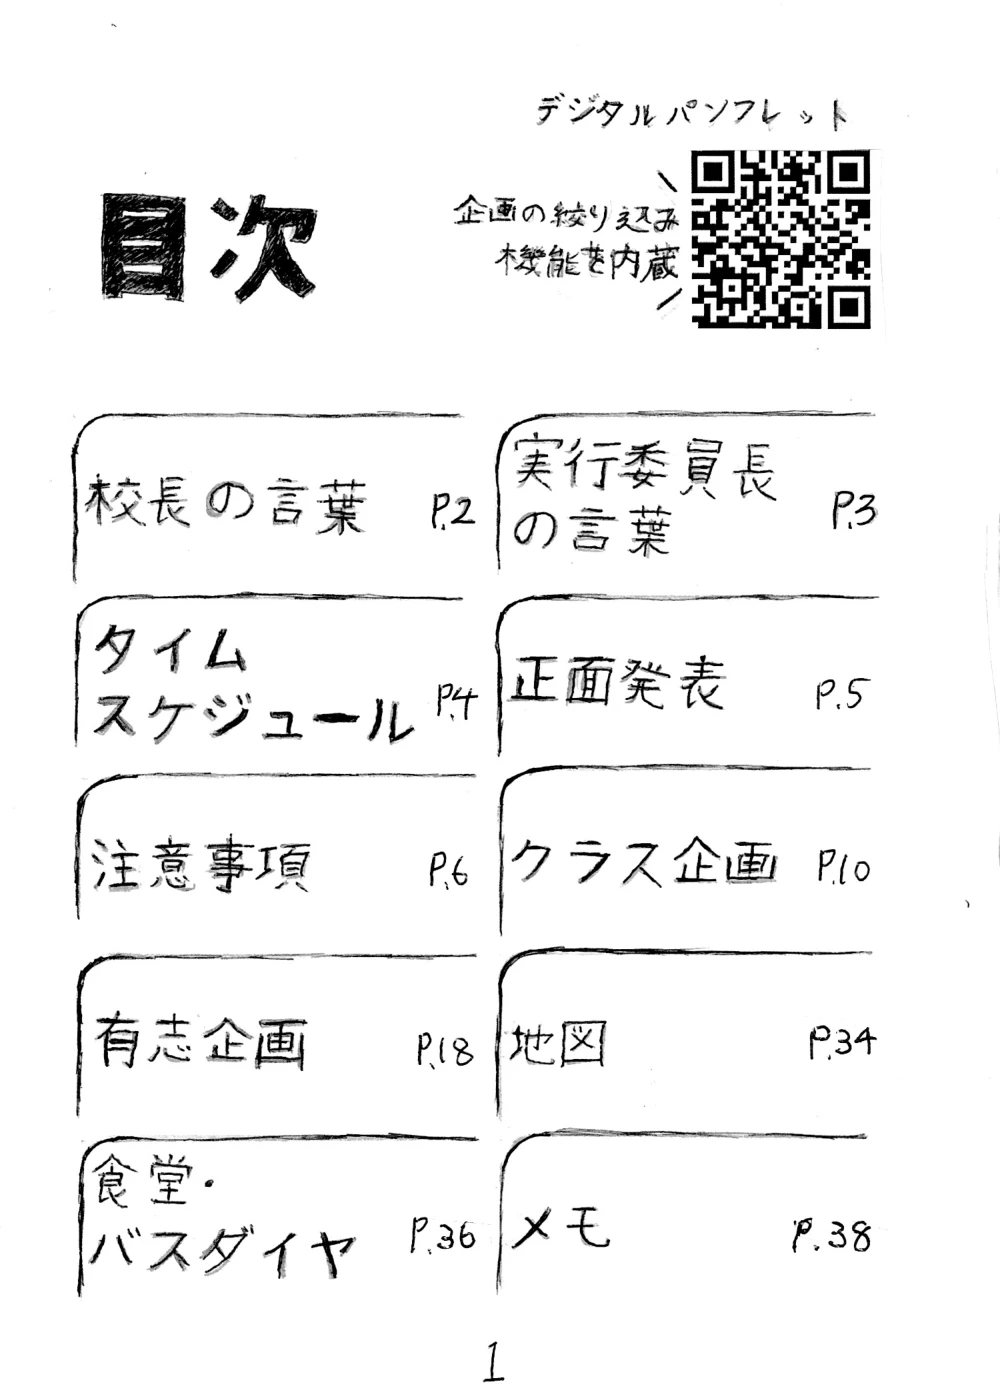 デジタルパンフレット
目次
企画の絞り込み
機能を内蔵
校長の言葉 P.2
実行委員長
の言葉 P.3
タイム
スケジュール P.4
正面発表 P.5
注意事項 P.6
クラス企画 P.10
有志企画 P.18
地図 P.34
食堂・
バスダイヤ P.36
メモ P.38
1